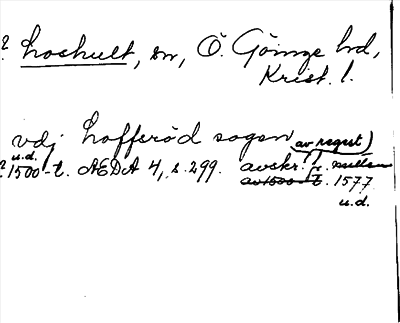 ? Loshult, sn, Ö. Göinge hd,
Krist. l.
vdj Lofferöd sogen av regest)
u.d.
? 1500-t. ÆDA 4, s. 299. avskr. fr. mitten
av 1500-t. 1577
u.d.